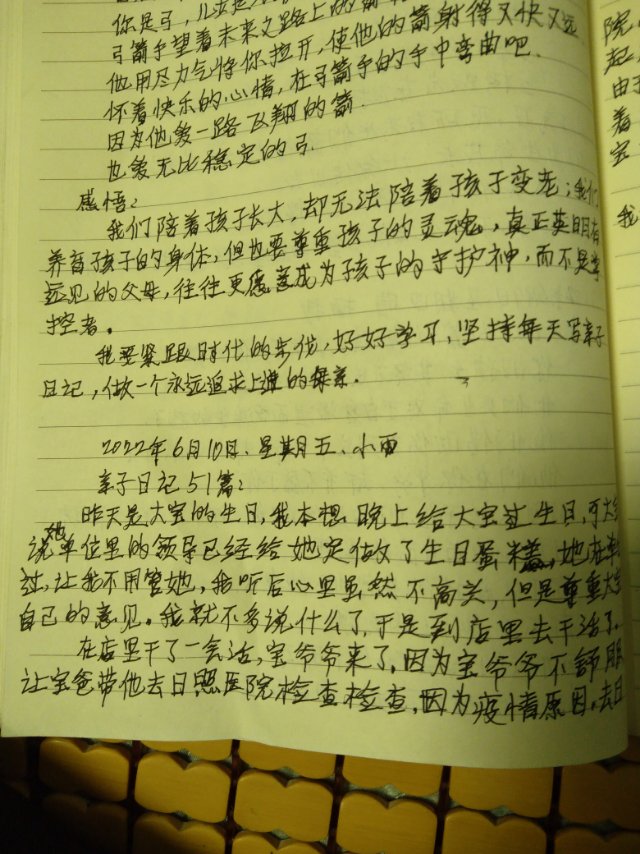 你是弓，儿女是
弓箭手望着未来之路上的箭
他用尽力气将你拉开，使他的箭射得又快又远
怀着快乐的心情，在弓箭手的手中弯曲吧.
因为他爱一路飞翔的箭.
也爱无比稳定的弓.
感悟：
我们陪着孩子长大，却无法陪着孩子变老；我们
养育孩子的身体，但也要尊重孩子的灵魂，真正英明有
远见的父母，往往更愿意成为孩子的守护神，而不是掌
控者。
我要紧跟时代的步伐，好好学习，坚持每天写亲子
日记，做一个永远追求上进的母亲.
2022年6月10日.星期五、小雨
亲子日记51篇：
昨天是大宝的生日，我本想晚上给大宝过生日，可大宝
说她单位里的领导已经给她定做了生日蛋糕，她在单
过，让我不用管她，我听后心里虽然不高兴，但是尊重大宝
自己的意见。我就不多说什么了，于是到店里去干活了.
在店里干了一会活，宝爷爷来了.因为宝爷爷不舒服
让宝爸带他去日照医院检查检查，因为疫情原因，去日
院
起，
由于
着
宝
我